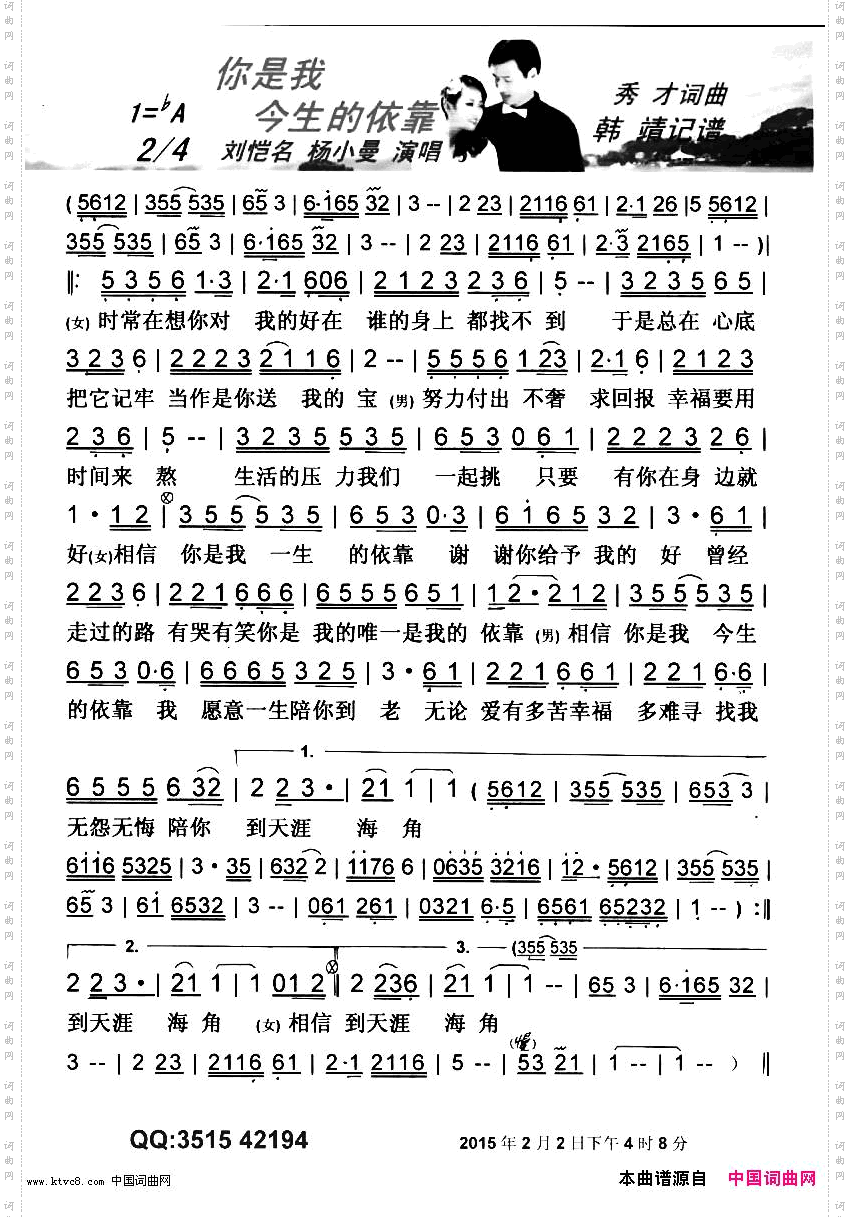 你是我
今生的依靠
1=♭A
2/4
刘恺名 杨小曼 演唱
秀 才词曲
韩 靖记谱
( 5612 | 355 535 | 65 3 | 6·165 32 | 3 -- | 2 23 | 2116 61 | 2·1 26 |5 5612 |
355 535 | 65 3 | 6·165 32 | 3 -- | 2 23 | 2116 61 | 2·3 2165 | 1 -- )|
‖: 5 3 5 6 1·3 | 2·1 606 | 2 1 2 3 2 3 6 | 5 -- | 3 2 3 5 6 5 |
(女) 时常在想你对 我的好在 谁的身上 都找不 到 于是总在 心底
3 2 3 6 | 2 2 2 3 2 1 1 6 | 2 -- | 5 5 5 6 1 23 | 2·1 6 | 2 1 2 3
把它记牢 当作是你送 我的 宝 (男) 努力付出 不奢 求回报 幸福要用
2 3 6 | 5 -- | 3 2 3 5 5 3 5 | 6 5 3 0 6 1 | 2 2 2 3 2 6 |
时间来 熬 生活的压 力我们 一起挑 只要 有你在身 边就
1 · 1 2 | 3 5 5 5 3 5 | 6 5 3 0·3 | 6 1 6 5 3 2 | 3 · 6 1 |
好(女)相信 你是我 一生 的依靠 谢 谢你给予 我的 好 曾经
2 2 3 6 | 2 2 1 6 6 6 | 6 5 5 5 6 5 1 | 1 2 · 2 1 2 | 3 5 5 5 3 5 |
走过的路 有哭有笑你是 我的唯一是我的 依靠 (男) 相信 你是我 今生
6 5 3 0·6 | 6 6 6 5 3 2 5 | 3· 6 1 | 2 2 1 6 6 1 | 2 2 1 6·6 |
的依靠 我 愿意一生陪你到 老 无论 爱有多苦幸福 多难寻 找我
1.
6 5 5 5 6 32 | 2 2 3 · | 21 1 | 1 ( 5612 | 355 535 | 653 3 |
无怨无悔 陪你 到天涯 海 角
6116 5325 | 3 · 35 | 632 2 | 1176 6 | 0635 3216 | 12 · 5612 | 355 535 |
65 3 | 61 6532 | 3 -- | 061 261 | 0321 6·5 | 6561 65232 | 1 -- ) :‖
2. 3. (355 535
2 2 3 · | 21 1 | 1 01 2 ‖ 2 236 | 21 1 | 1 -- | 65 3 | 6·165 32 |
到天涯 海 角 (女) 相信 到天涯 海 角
(慢)
3 -- | 2 23 | 2116 61 | 2·1 2116 | 5 -- | 53 21 | 1 -- | 1 -- ) ‖
QQ:3515 42194
2015 年 2 月 2 日下午 4 时 8 分
www.ktvc8.com 中国词曲网
本曲谱源自 中国词曲网